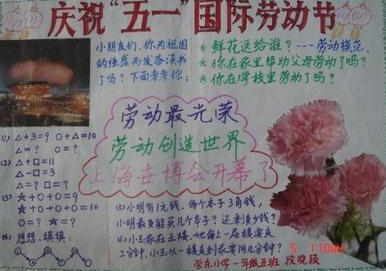 庆祝"五一"国际劳动节
小朋友们，你为祖国
的强盛而发奋读书
了吗？下面考考你：
※ 鲜花送给谁？---劳动模范
※ 你在家里帮助父母劳动了吗？
※ 你在学校里劳动了吗？
劳动最光荣
劳动创造世界
上海世博会开幕了
(1) △+3=9 ○+△=10
△=？ ○=？
(2) △-□=11
△+□=3
△=？ □=？
(3) ☆+○+○=9
☆+○+○+○=10
○=？ ☆=？
(4) 想想，填填：
(5) 小明有1元钱，每个本子3角钱，
小明最多能买几个本子？还剩多少钱？
2分钟，小王从一楼走到家要用几分钟？
小学一年级五班 段晓颖